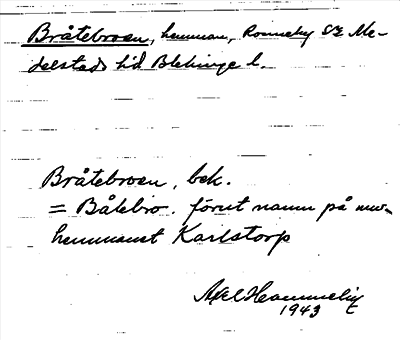 Bråtebroen, hemman, Ronneby sn Me-
delstads hd Blekinge l.
Bråtebroen, bek.
= Båtebro. förut namn på nuv.
hemmanet Karlstorp
Axel Hammelin
1943